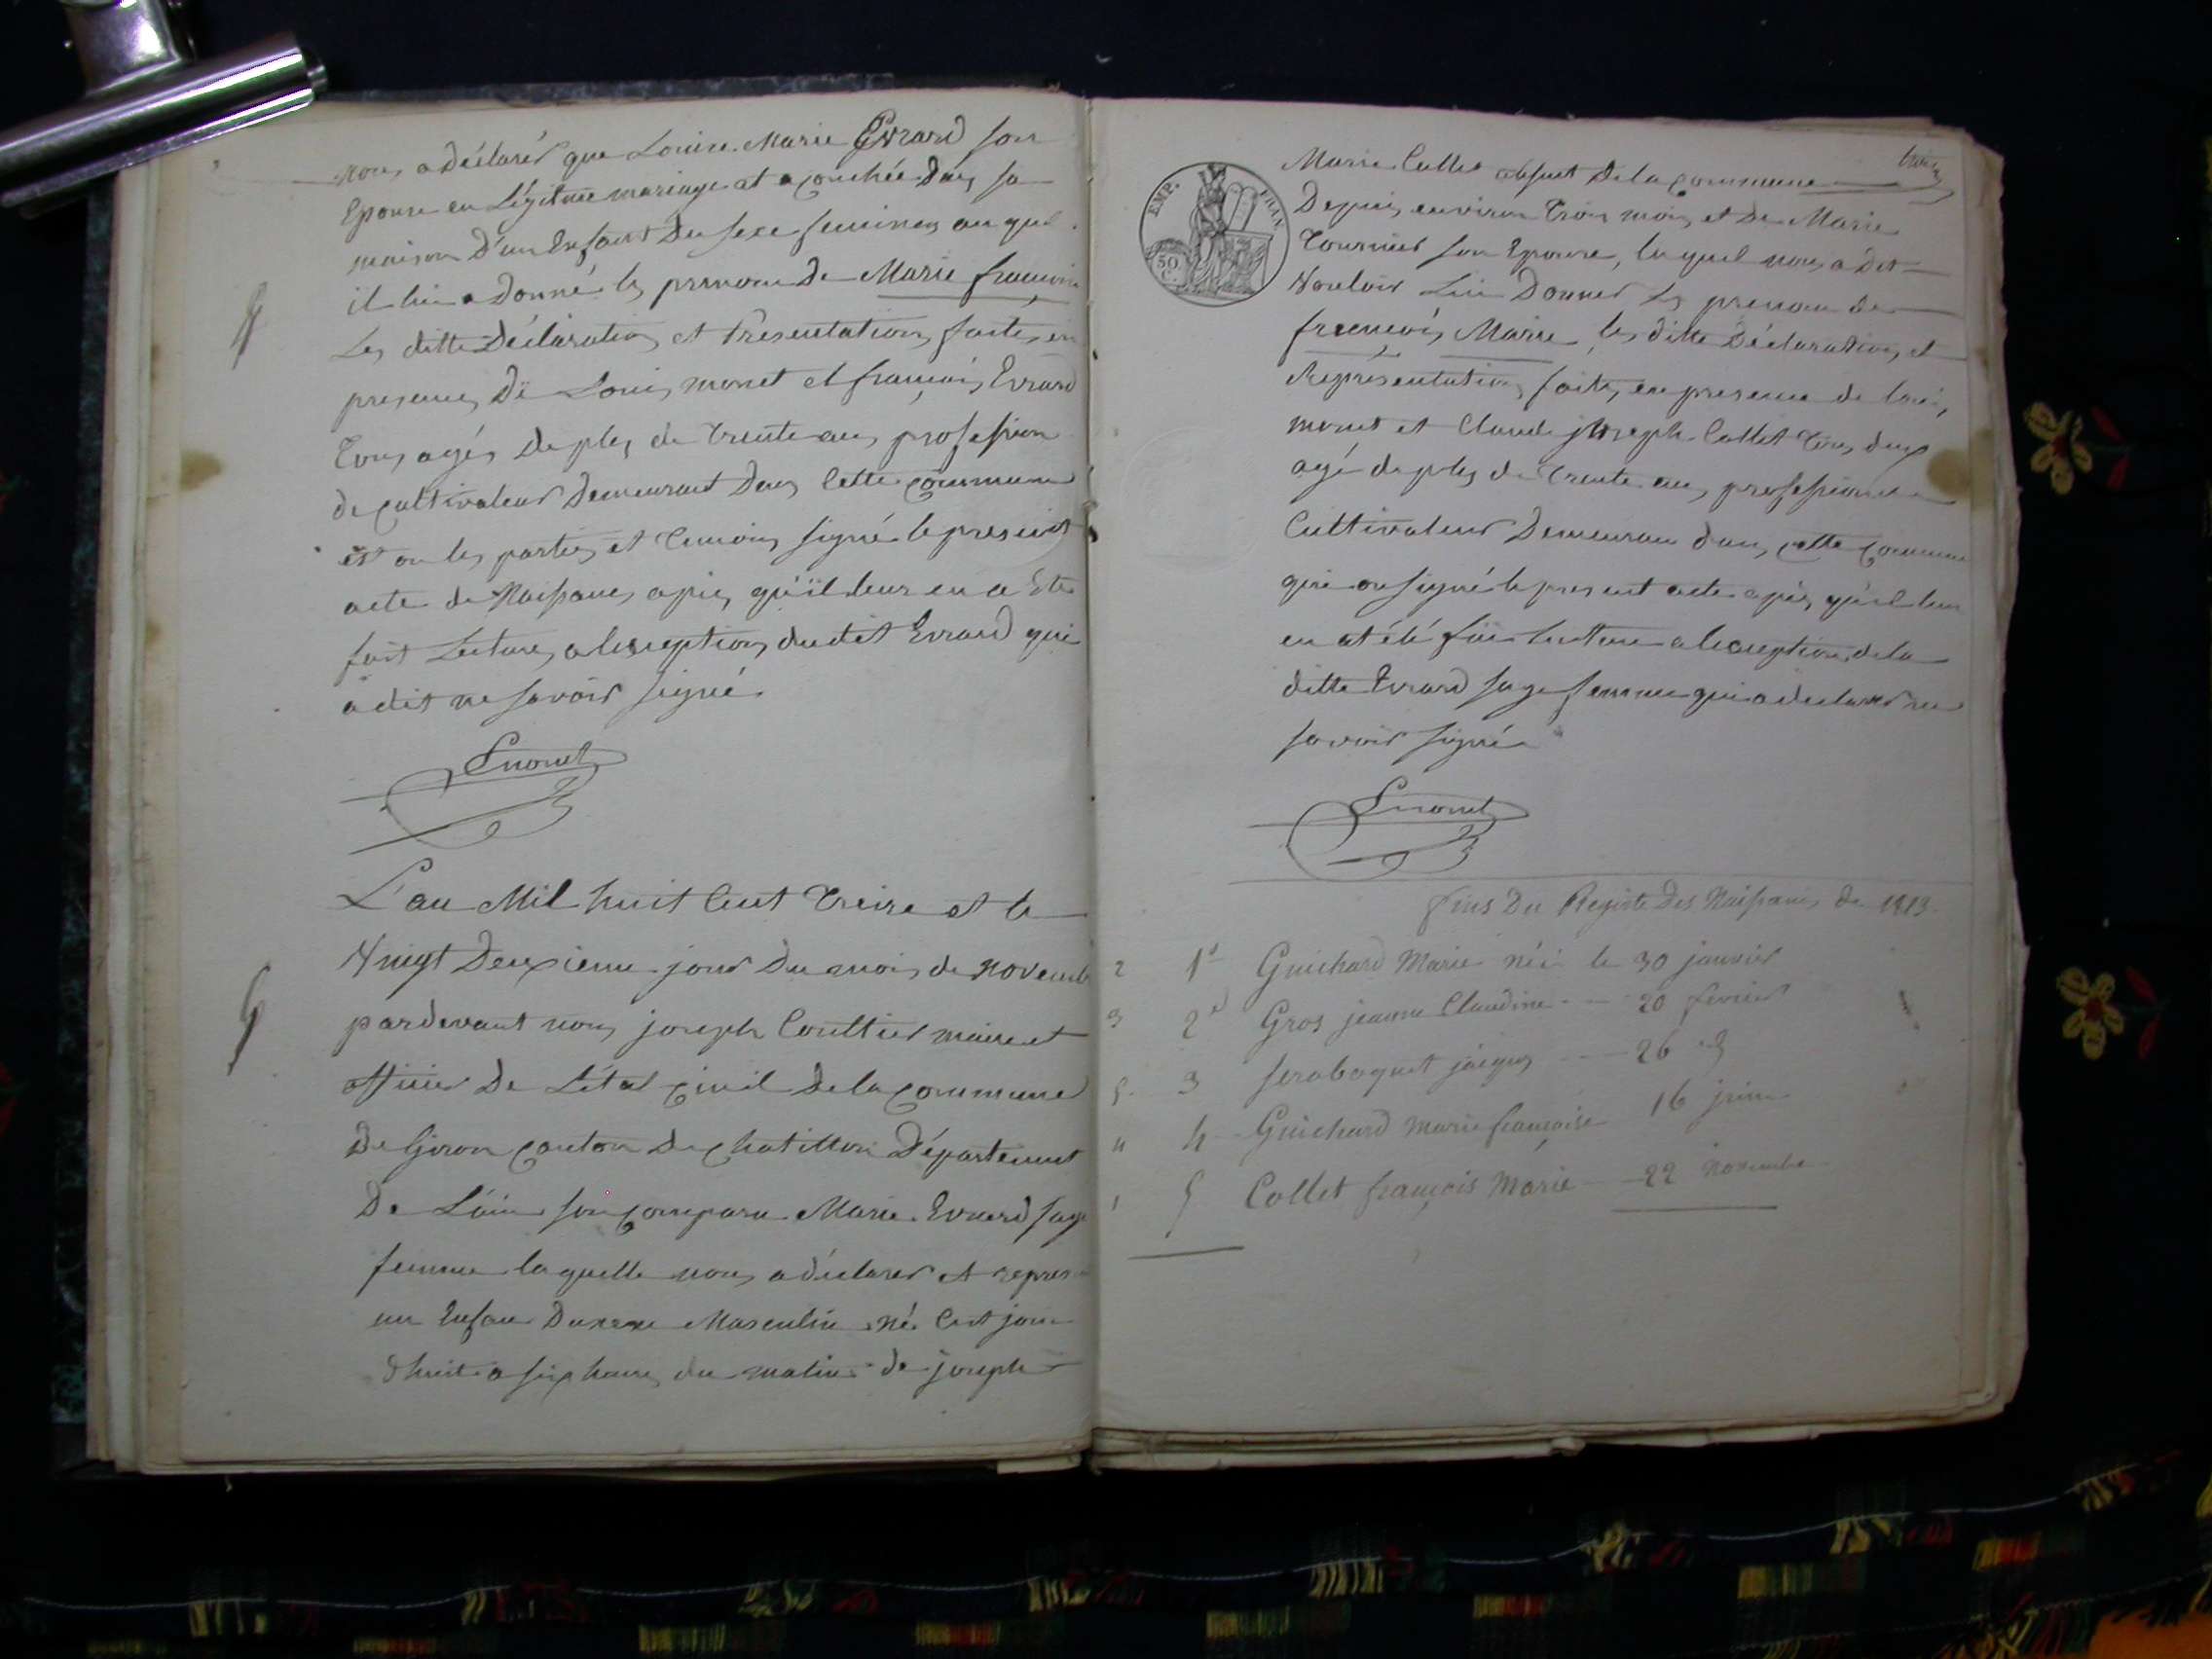 nous a déclarér que Louise Marie Evrard son
Epouse en Légitme mariage at acouchée dans sa
maison D'un Enfant du sexe feminen au quel
il lui a donné les prenom de Marie françoise
4
Les ditte Déclaration et Presentation faite, en
presence, De Louis monet et françois Evrard
tous agés de plus de trente ans, profession
de cultivateur demeurant dans Cette commune
et on les partie, et temoins signé le present
acte de Naissance, apres qu'il leur en a Ete
fait Lecture, a lexception, du dit Evrard qui
a dit ne savoir signé.
Lmonet
L'an Mil huit Cent treize et le
Vingt Deuxieme jour Du mois de novembre
5
pardevant nous joseph Coultier maire et
officier De L'état civil De la commune
De Giron canton De Chatillon Département
De L'ain son comparu Marie Evrard sage
femme laquelle nous a déclarer et repres
un Enfan Du sexe Masculin né Cest jour
d'huit a six heures du matin de joseph
EMP. FRAN.
50 C.
trois
Marie Collet absent De la commune
Depuis environ trois mois et De Marie
tournier son Epouse, lequel nous a dit
Vouloir Lui Donner Les prenom de
françois Marie, les ditte Déclaration, et
Représentation, faite, en presence de Louis
monet et Claude joseph Collet tous deux
agé de plus de trente ans, profession
Cultivateur Demeuran dans, cette commune
qui on signé le present acte apres qu'il leur
en at été fait lecture a lexception, de la
ditte Evrard sage femme qui a declarer ne
savoir signé
Lmonet
fins Du Registe Des Naissances de 1813.
2 1r Guichard Marie née le 30 janvier
3 2e Gros jeanne Claudine - - 20 fevrier
5 3 jacques - - 26 d
4 4 Guichard marie françoise 16 juin
1 5 Collet françois Marie - 22 novembre